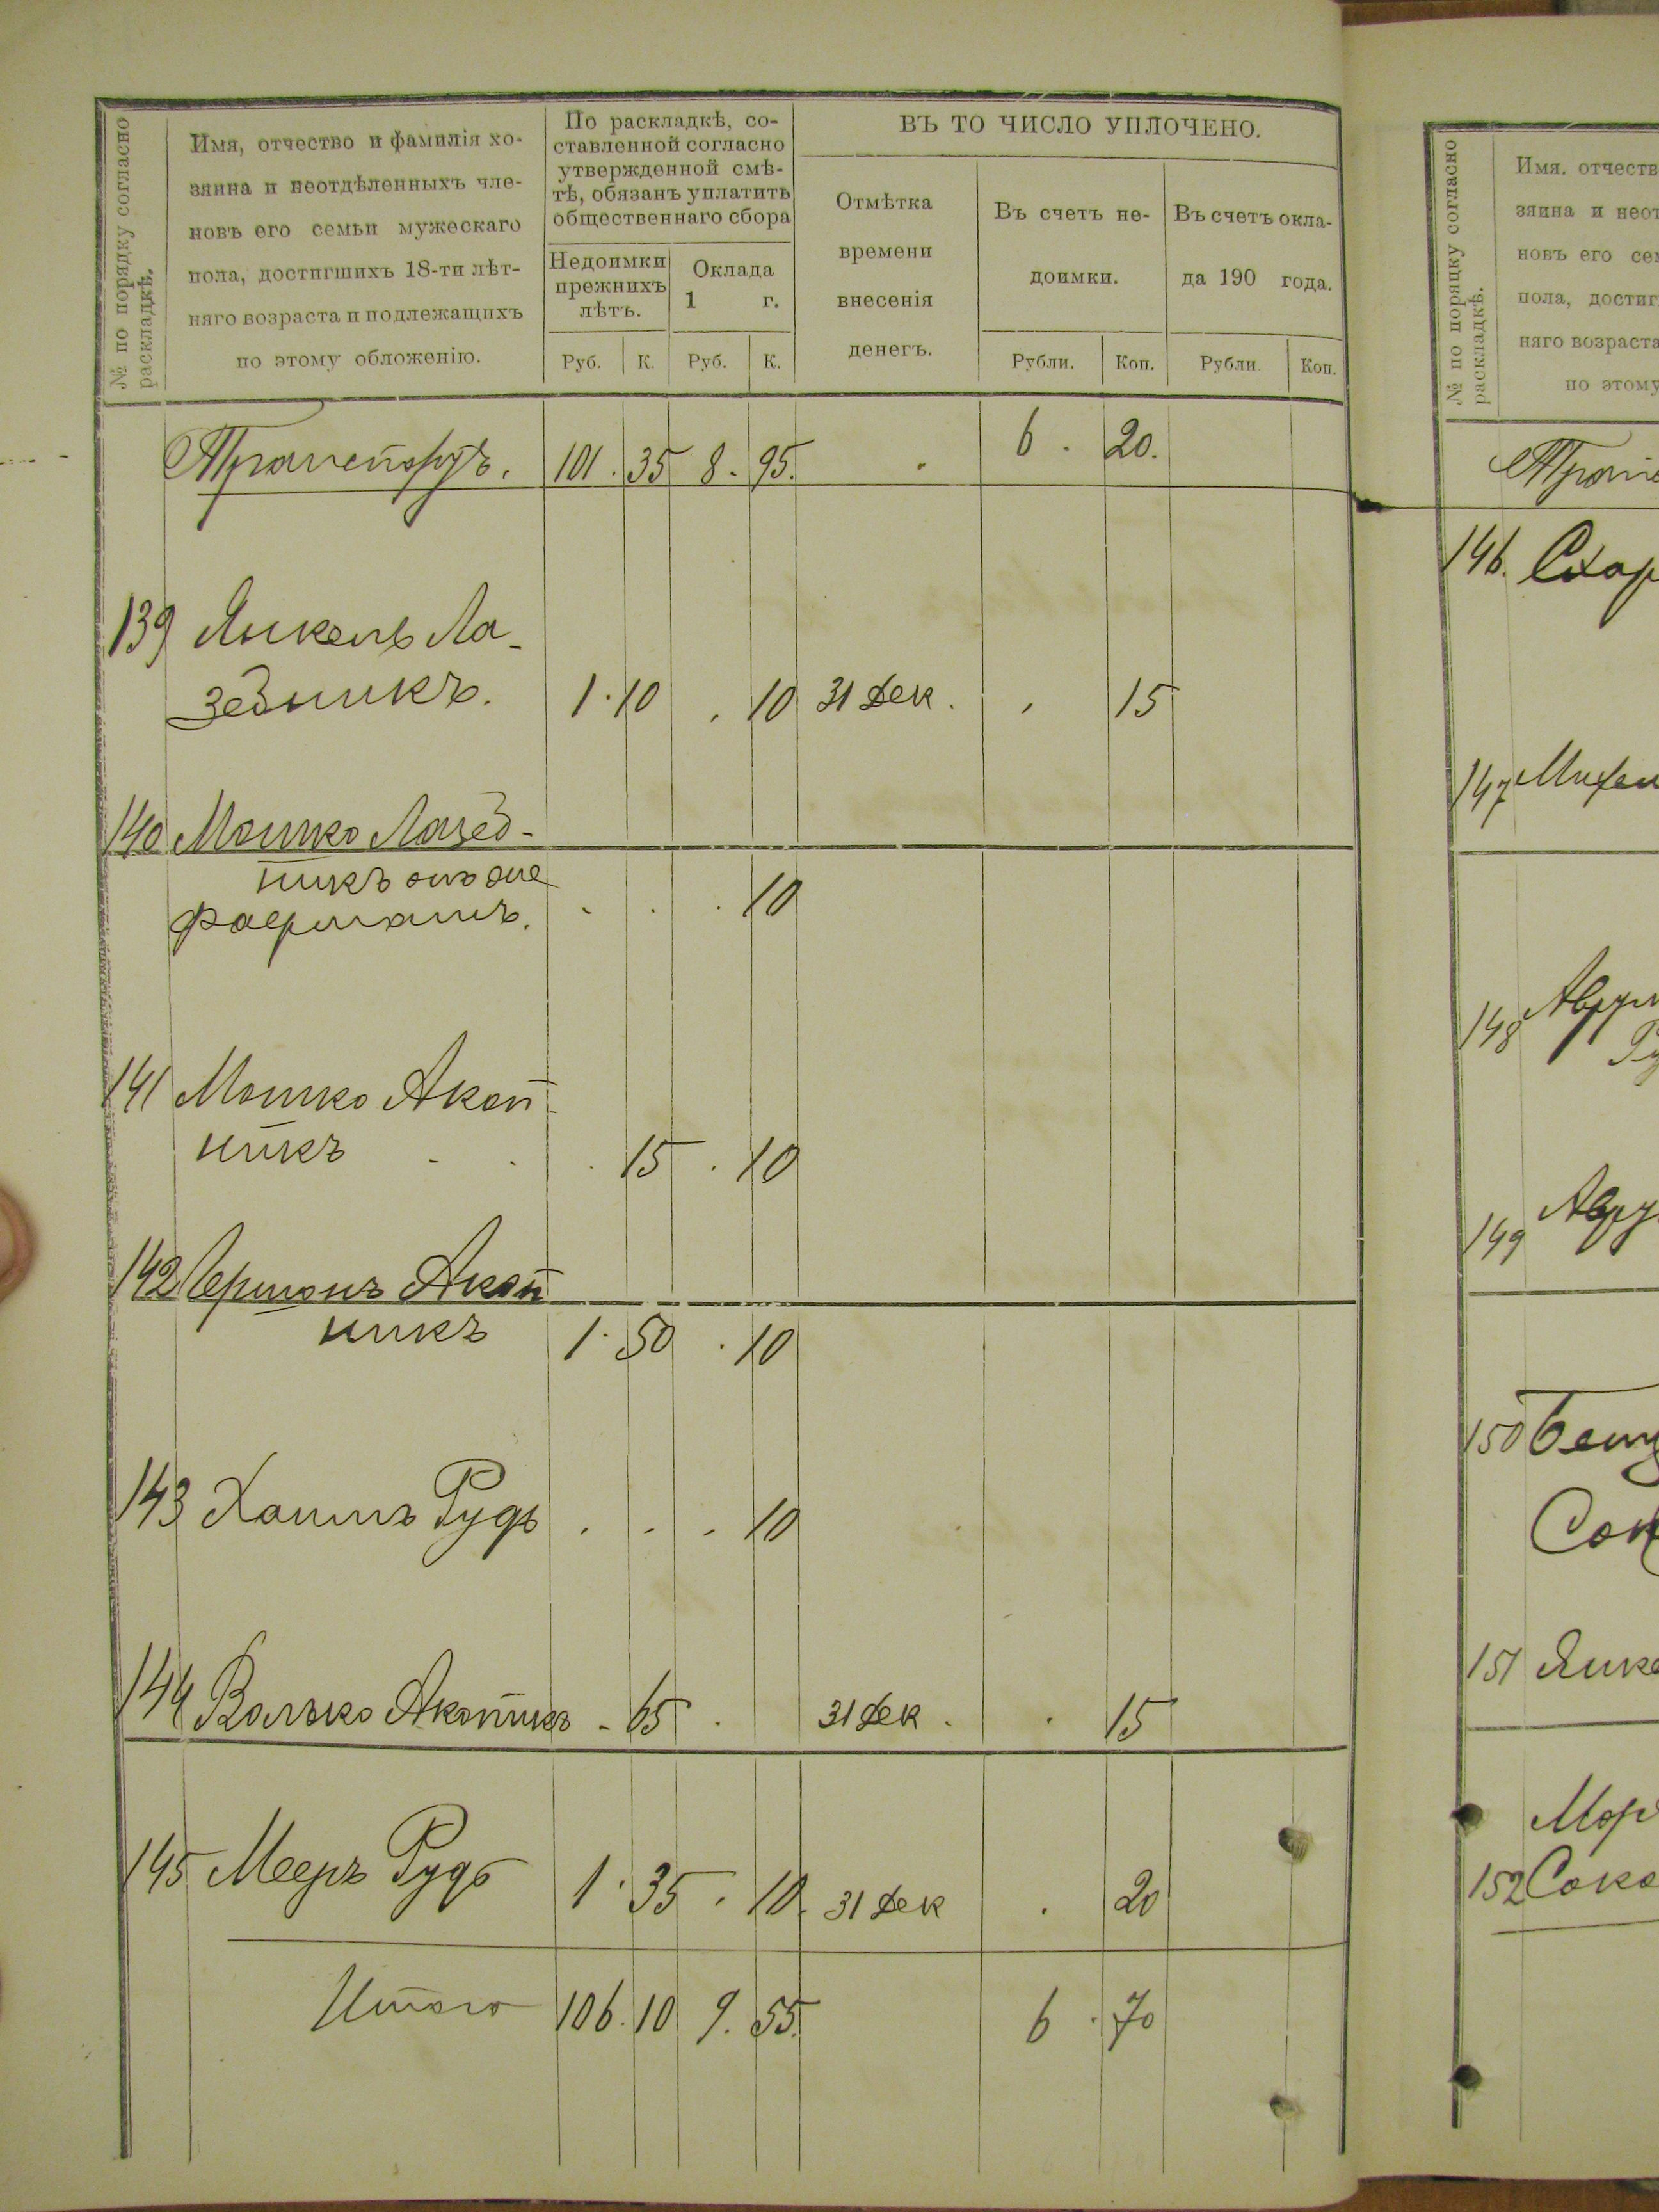 № по порядку согласно
раскладкѣ.
Имя, отчество и фамилія хо-
зяина и неотдѣленныхъ чле-
новъ его семьи мужескаго
пола, достигшихъ 18-ти лѣт-
няго возраста и подлежащихъ
по этому обложенію.
По раскладкѣ, со-
ставленной согласно
утвержденной смѣ-
тѣ, обязанъ уплатить
общественнаго сбора
Недоимки
прежнихъ
лѣтъ.
Оклада
1 г.
Руб. К. Руб. К.
ВЪ ТО ЧИСЛО УПЛОЧЕНО.
Отмѣтка
времени
внесенія
денегъ.
Въ счетъ не-
доимки.
Въ счетъ окла-
да 190 года.
Рубли. Коп. Рубли. Коп.
Транспортъ. 101. 35 8. 95. 6. 20.
139 Янкель Ла-
зебникъ. 1. 10 . 10 31 Дек. . 15
140 Мошко Лазеб-
никъ онъ же
Фаерманъ. . . . 10
141 Мошко Акоп-
никъ . 15 . 10
142 Германъ Акоп
никъ 1. 50 . 10
143 Хаимъ Рудь . . . 10
144 Волько Акопникъ . 65 . 31 Дек . . 15
145 Мееръ Рудь 1. 35 . 10. 31 Дек . 20
Итого 106. 10 9. 55. 6. 70
№ по порядку согласно
раскладкѣ.
Имя. отчеств
зяина и неот
новъ его сем
пола, достиг
няго возраста
по этому
146.
147
148 Аврум
Ру
149 Авру
150
Сок
151 Янке
Мор
152 Соко